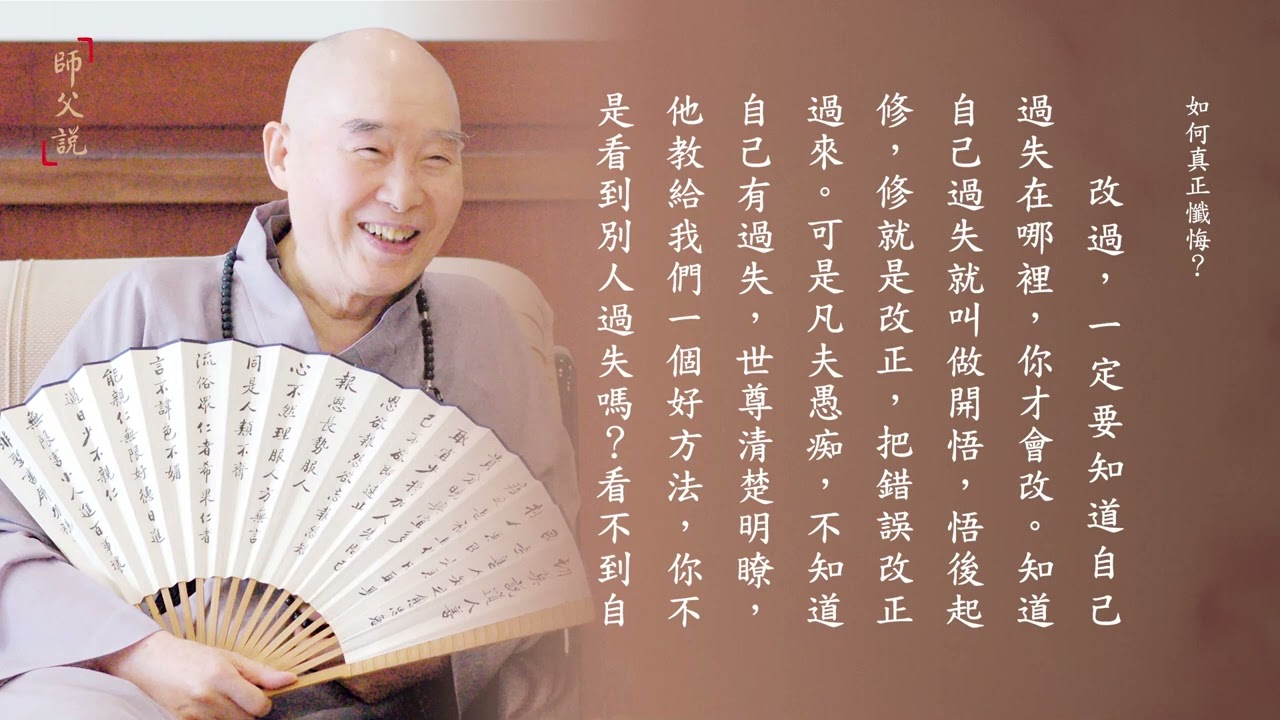 師父說
如何真正懺悔？
改過，一定要知道自己
過失在哪裡，你才會改。知道
自己過失就叫做開悟，悟後起
修，修就是改正，把錯誤改正
過來。可是凡夫愚痴，不知道
自己有過失，世尊清楚明瞭，
他教給我們一個好方法，你不
是看到別人過失嗎？看不到自
報恩長勢服人
心不然理服人方無言
同是人類不齊
流俗眾仁者希果仁者
言不諱色不媚
能親仁無限好德日進
過日少不親仁
無限害小人進百事壞